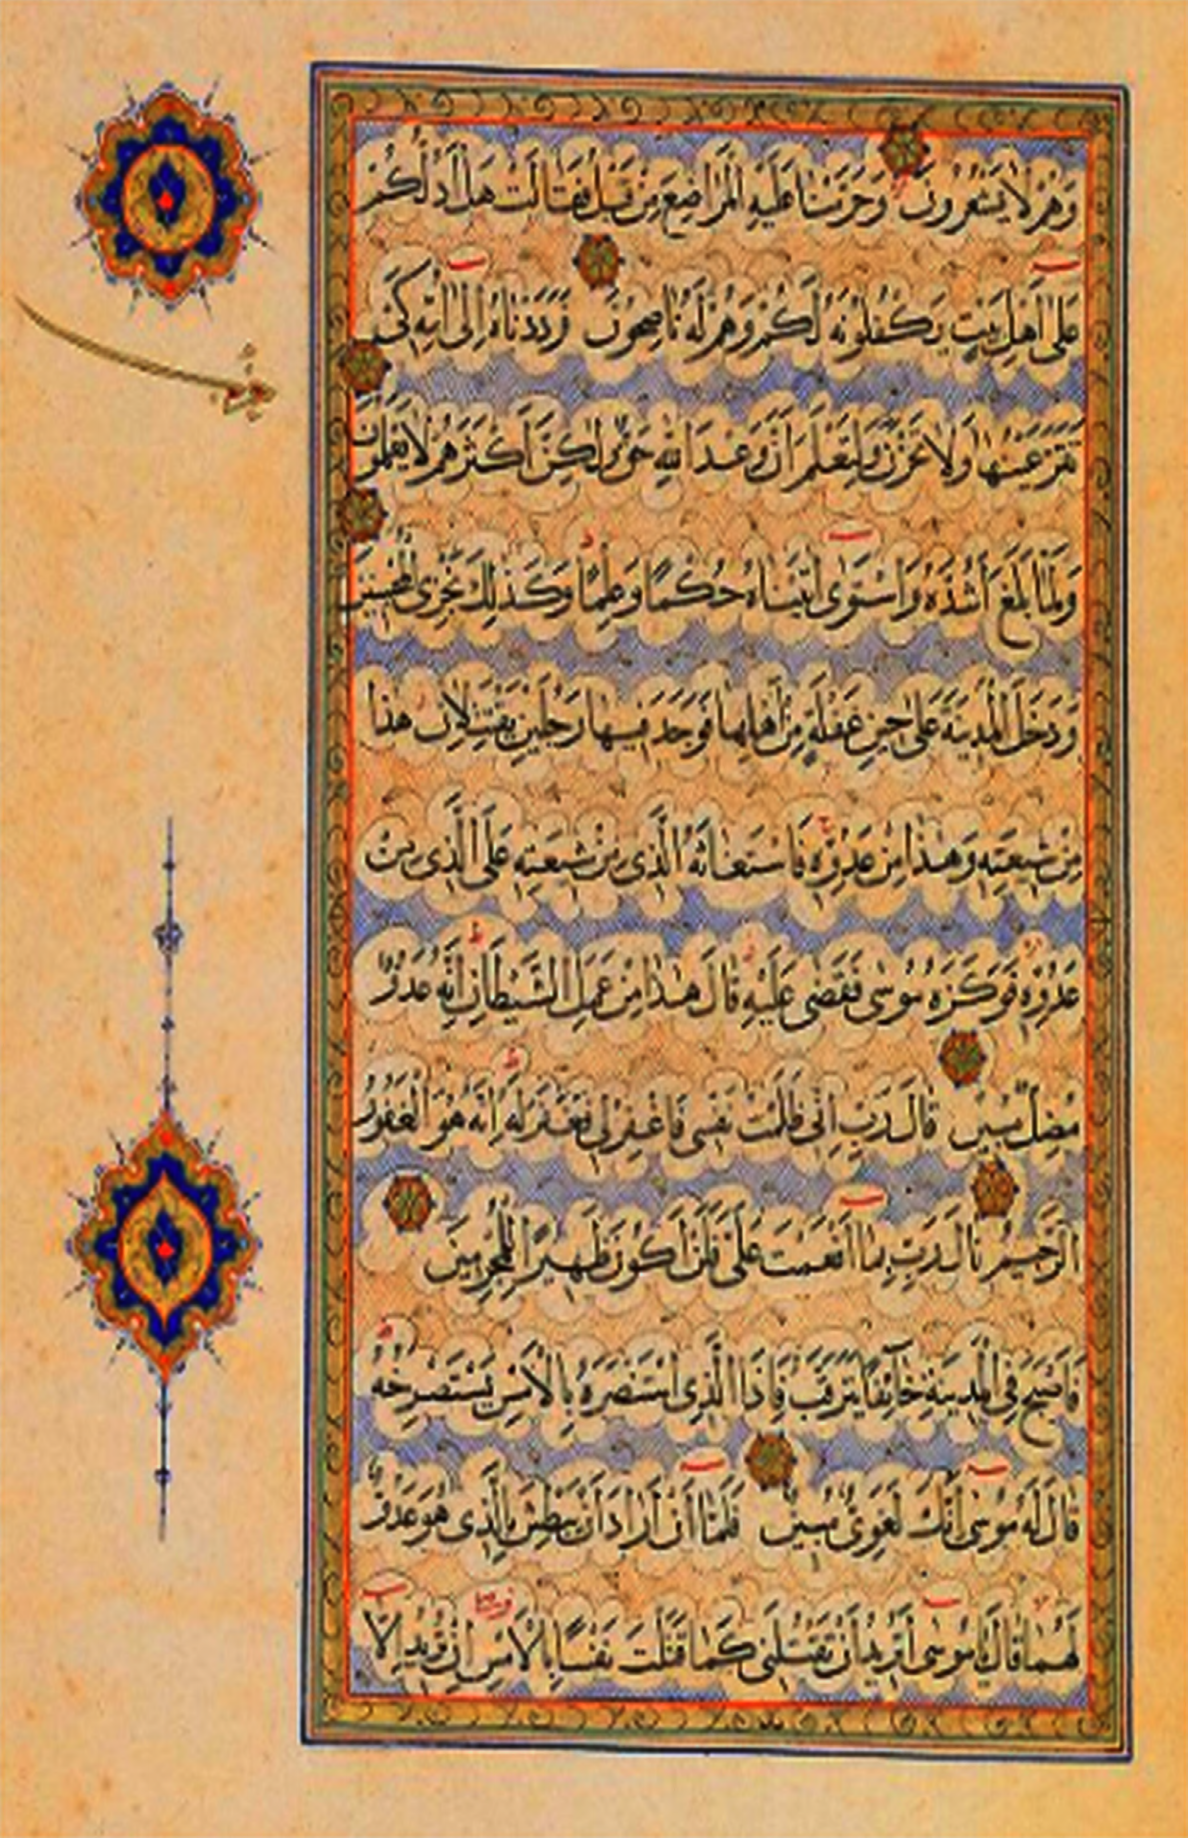 وَهُمْ لَا يَشْعُرُونَ وَحَرَّمْنَا عَلَيْهِ الْمَرَاضِعَ مِنْ قَبْلُ فَقَالَتْ هَلْ أَدُلُّكُمْ
عَلَى أَهْلِ بَيْتٍ يَكْفُلُونَهُ لَكُمْ وَهُمْ لَهُ نَاصِحُونَ فَرَدَدْنَاهُ إِلَى أُمِّهِ كَيْ
تَقَرَّ عَيْنُهَا وَلَا تَحْزَنَ وَلِتَعْلَمَ أَنَّ وَعْدَ اللَّهِ حَقٌّ وَلَكِنَّ أَكْثَرَهُمْ لَا يَعْلَمُونَ
وَلَمَّا بَلَغَ أَشُدَّهُ وَاسْتَوَى آتَيْنَاهُ حُكْمًا وَعِلْمًا وَكَذَلِكَ نَجْزِي الْمُحْسِنِينَ
وَدَخَلَ الْمَدِينَةَ عَلَى حِينِ غَفْلَةٍ مِنْ أَهْلِهَا فَوَجَدَ فِيهَا رَجُلَيْنِ يَقْتَتِلَانِ هَذَا
مِنْ شِيعَتِهِ وَهَذَا مِنْ عَدُوِّهِ فَاسْتَغَاثَهُ الَّذِي مِنْ شِيعَتِهِ عَلَى الَّذِي مِنْ
عَدُوِّهِ فَوَكَزَهُ مُوسَى فَقَضَى عَلَيْهِ قَالَ هَذَا مِنْ عَمَلِ الشَّيْطَانِ إِنَّهُ عَدُوٌّ
مُضِلٌّ مُبِينٌ قَالَ رَبِّ إِنِّي ظَلَمْتُ نَفْسِي فَاغْفِرْ لِي فَغَفَرَ لَهُ إِنَّهُ هُوَ الْغَفُورُ
الرَّحِيمُ قَالَ رَبِّ بِمَا أَنْعَمْتَ عَلَيَّ فَلَنْ أَكُونَ ظَهِيرًا لِلْمُجْرِمِينَ
فَأَصْبَحَ فِي الْمَدِينَةِ خَائِفًا يَتَرَقَّبُ فَإِذَا الَّذِي اسْتَنْصَرَهُ بِالْأَمْسِ يَسْتَصْرِخُهُ
قَالَ لَهُ مُوسَى إِنَّكَ لَغَوِيٌّ مُبِينٌ فَلَمَّا أَنْ أَرَادَ أَنْ يَبْطِشَ بِالَّذِي هُوَ عَدُوٌّ
لَهُمَا قَالَ يَا مُوسَى أَتُرِيدُ أَنْ تَقْتُلَنِي كَمَا قَتَلْتَ نَفْسًا بِالْأَمْسِ إِنْ تُرِيدُ إِلَّا